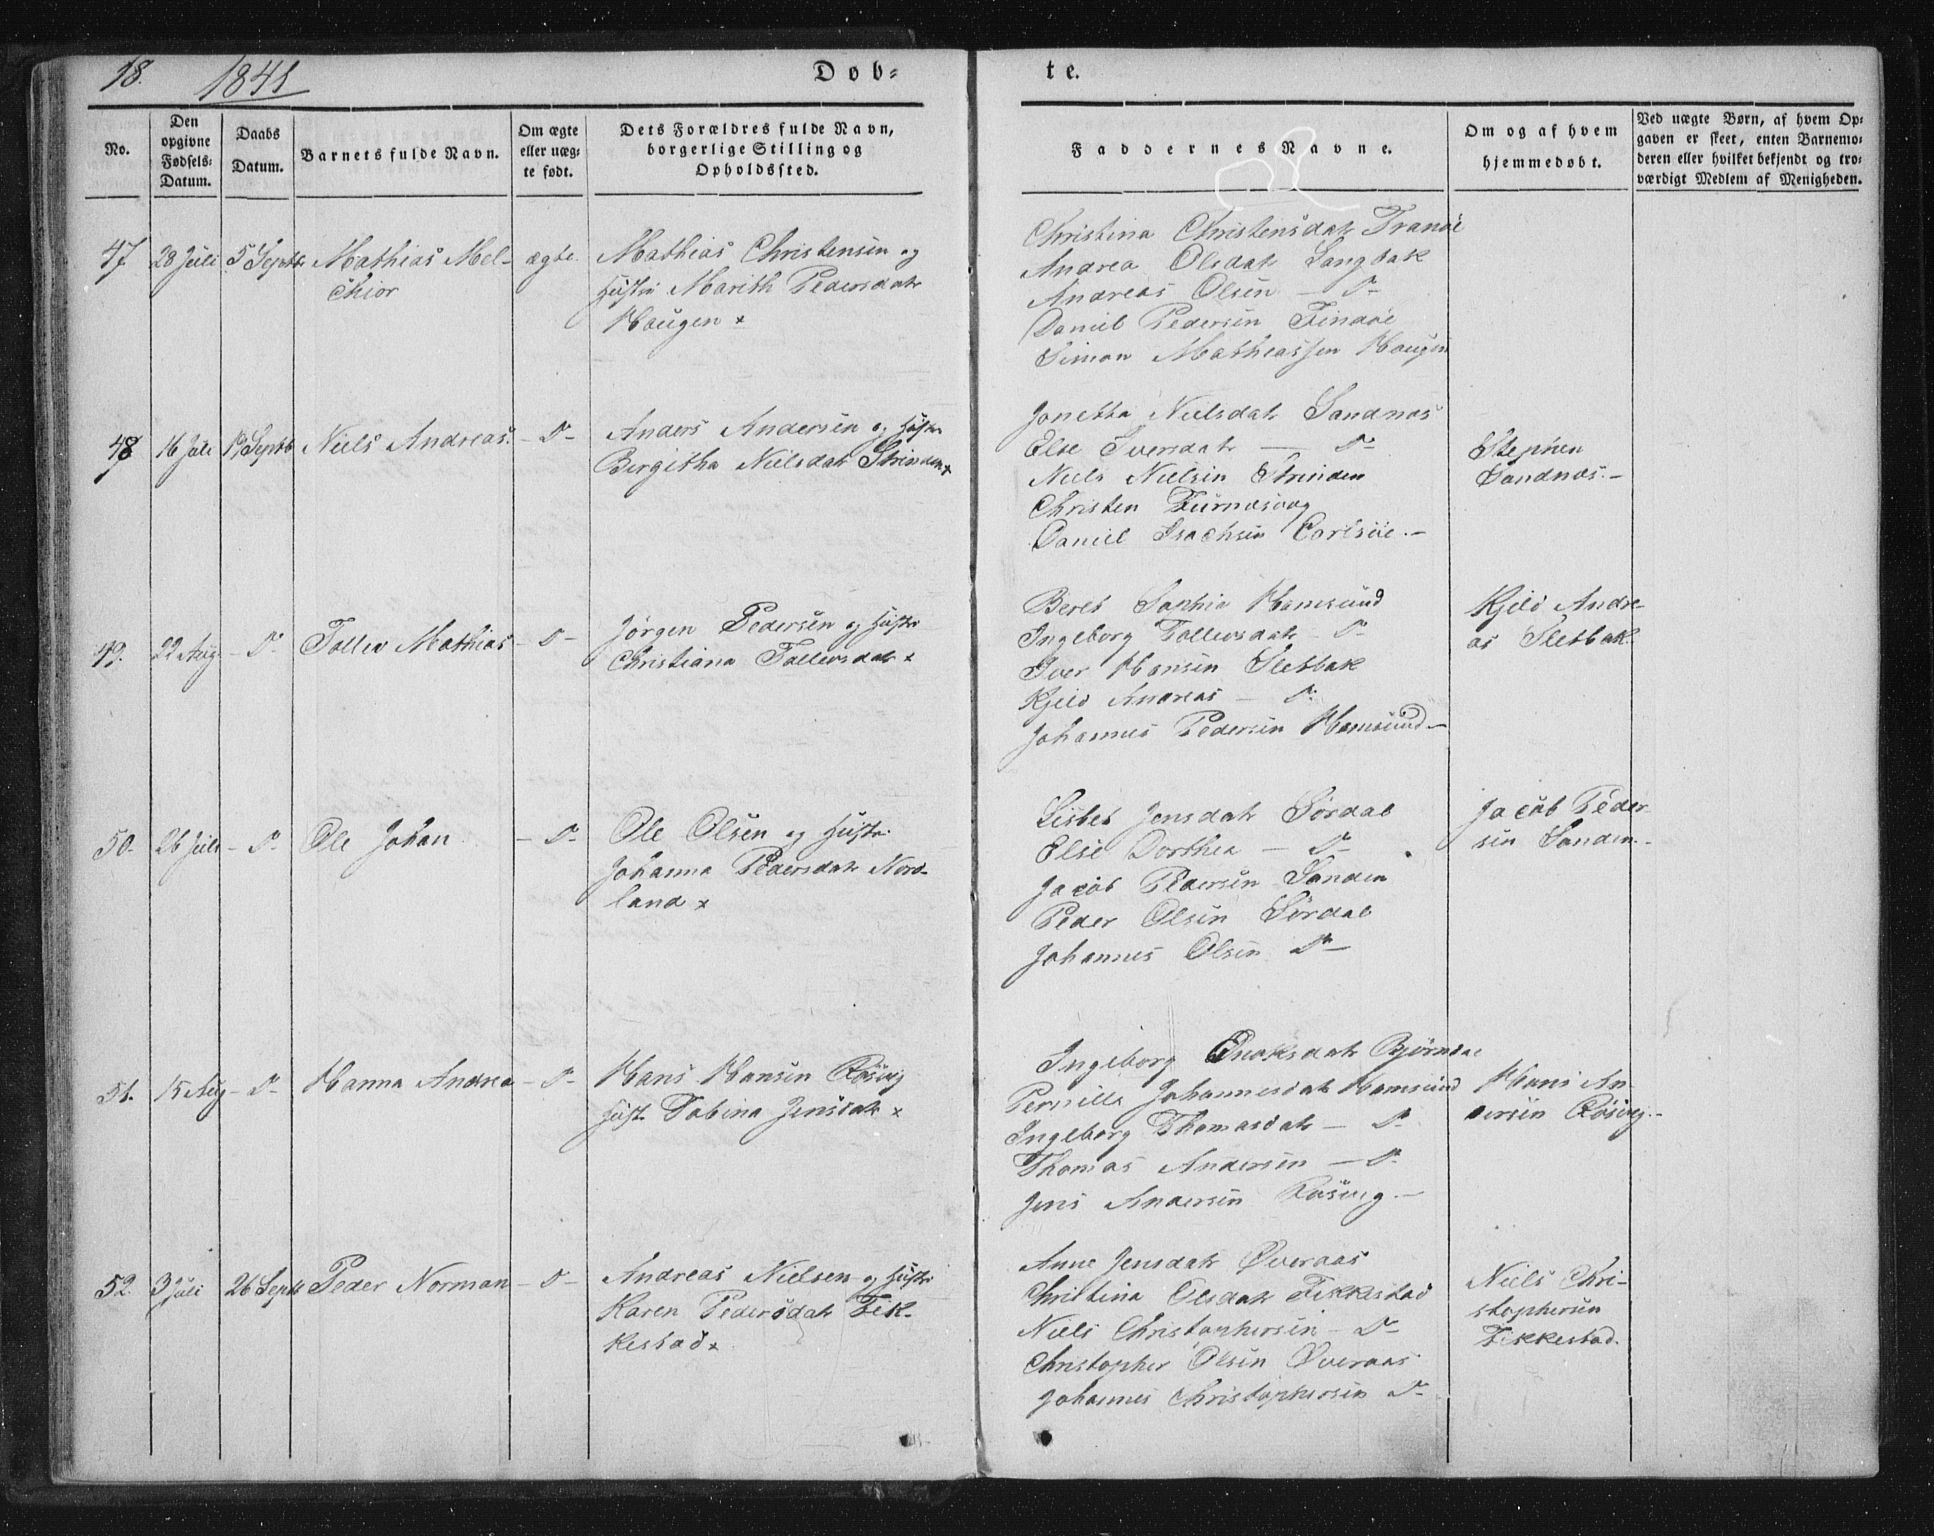 18. 1841 Døb= te.
No.
Den opgivne Fødsels= Datum.
Daabs Datum.
Barnets fulde Navn.
Om ægte eller uæg= te født.
Dets Forældres fulde Navn, borgerlige Stilling og Opholdssted.
Faddernes Navne.
Om og af hvem hjemmedøbt.
Ved uægte Børn, af hvem Op= gaven er skeet, enten Barnemo= deren eller hvilket bekjendt og tro= værdigt Medlem af Menigheden.
47 28 Juli 5 Septb Mathias Mel- ægte Mathias Christensen og
chior
Hustr Marith Pedersdatr
Haugen x
Christina Christensdatr Tranøe
Andrea Olsdatr Langbak
Andreas Olsen — D-
Daniel Pedersen Findøe
Simon Mathiassen Haugen
48 16 Juli 19 Septb Niels Andreas. - D- Anders Andersen og Hustr
Bergitha Nielsdatr Strinden x
Jonetta Nielsdatr Sandnæs
Else Iversdatr — D-
Niels Nielsen Strinden
Christen Furnæsvag
Daniel Isachsen Carlsøe. —
Stephen
Sandnæs. —
49. 22 Aug - D- Tollev Mathias - D- Jørgen Pedersen og Hustr
Christiana Tollevsdatr x
Beret Sophia Hamsund
Ingeborg Tollevsdatr - D-
Iver Hansen Sletbak
Kjeld Andreas — D-
Johannes Pedersen Hamsund —
Kjeld Andre-
as Sletbak.
50. 26 Juli - D- Ole Johan - D- Ole Olsen og Hustr.
Johanna Pedersdatr Nord-
land x
Lisbet Jensdatr Sørdal
Else Dorthea — D-
Jacob Pedersen Sanden
Peder Olsen Sørdal
Johannes Olsen D-
Jacob Peder-
sen Sanden. -
51. 15 Aug - D- Hanna Andrea - D- Hans Hansen Røsvig
Hust. Tabina Jensdatr x
Ingeborg Enoksdatr Bjørndal
Pernille Johannesdatr Hamsund
Ingeborg Thomasdatr — D-
Thomas Andersen — D-
Jens Andersen Røsvig. —
Hans An-
dersen Røsvig. -
52. 3 Juli 26 Septb Peder Norman - D- Andreas Nielsen og Hustr
Karen Pedersdatr Fik-
kestad x
Anne Jensdatr Øveraas
Christina Olsdatr Fikkestad
Niels Christophersen - D-
Christopher Olsen Øveraas
Johannes Christophersen D-
Niels Chri-
stophersen
Fikkestad.